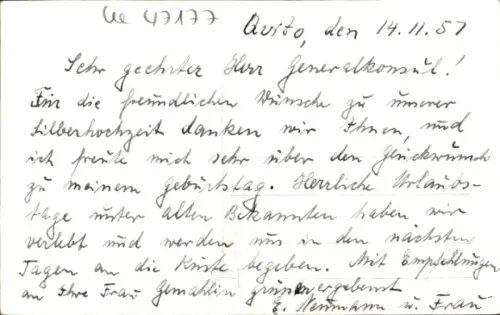 Ue 47177
Quito, den 14.11.57
Sehr geehrter Herr Generalkonsul!
Für die freundlichen Wünsche zu unserer
Silberhochzeit danken wir Ihnen, und
ich freute mich sehr über den Glückwunsch
zu meinem Geburtstag. Herrliche Urlaubs-
tage unter alten Bekannten haben wir
verlebt und werden uns in den nächsten
Tagen an die Küste begeben. Mit Empfehlungen
an Ihre Frau Gemahlin ergebenst
E. Neumann u. Frau